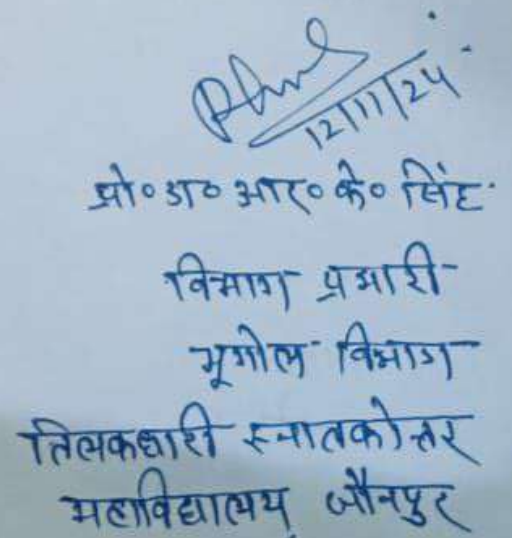 12/11/24
प्रो० डा० आर० के० सिंह
विभाग प्रभारी
भूगोल विभाग
तिलकधारी स्नातकोत्तर
महाविद्यालय जौनपुर